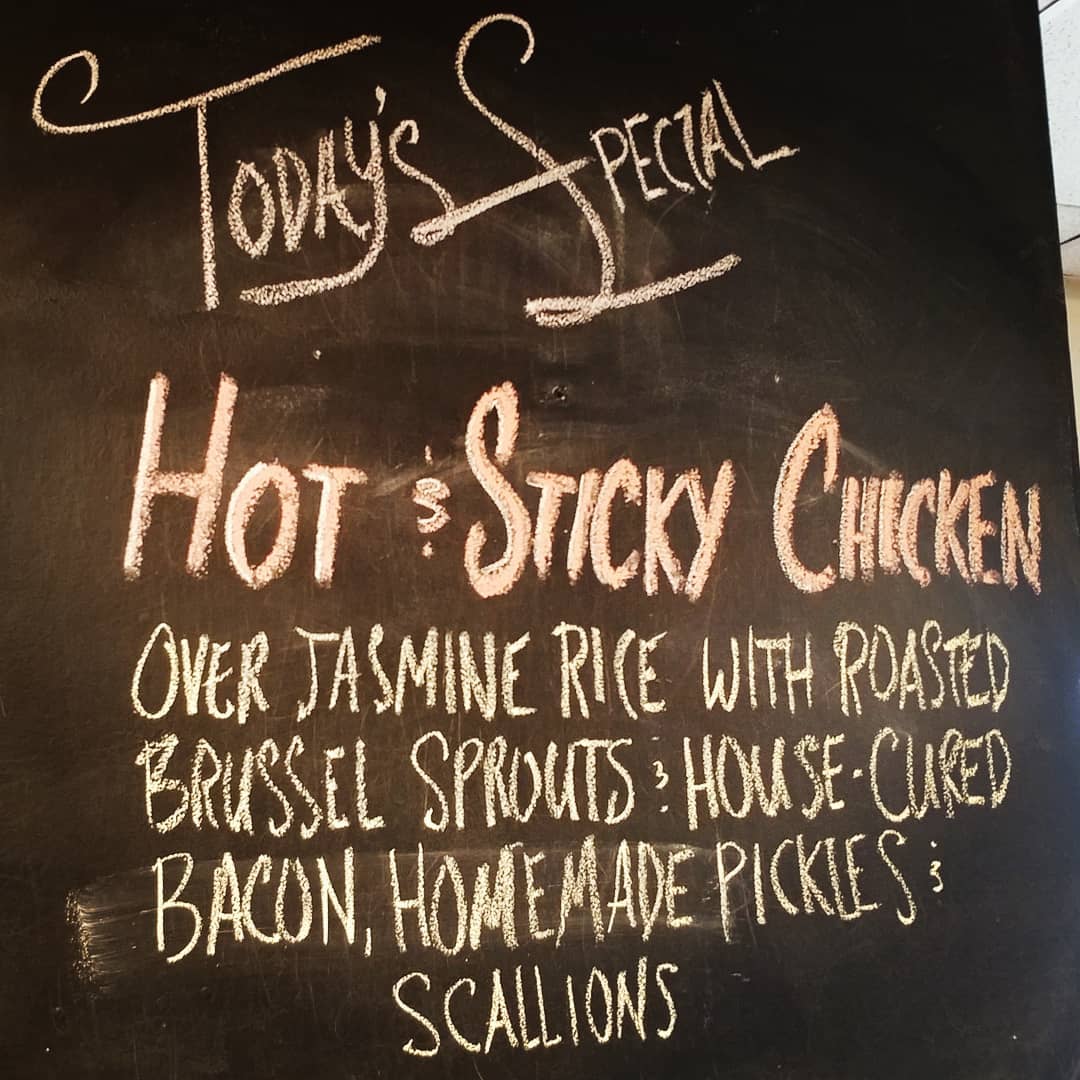 Today's Special
Hot & Sticky Chicken
Over Jasmine Rice with Roasted
Brussel Sprouts & House-Cured
Bacon, Homemade Pickles &
Scallions